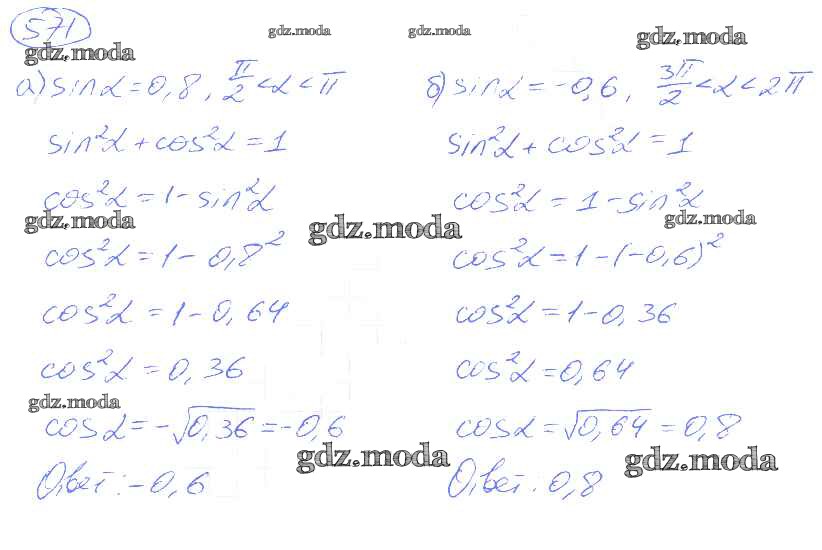 571
gdz.moda gdz.moda gdz.moda gdz.moda
а) sinα = 0,8, π/2 < α < π
sin²α + cos²α = 1
cos²α = 1 - sin²α
gdz.moda gdz.moda
cos²α = 1 - 0,8²
cos²α = 1 - 0,64
cos²α = 0,36
gdz.moda
cosα = -√0,36 = -0,6
gdz.moda
Ответ: -0,6
б) sinα = -0,6, 3π/2 < α < 2π
sin²α + cos²α = 1
cos²α = 1 - sin²α
gdz.moda
cos²α = 1 - (-0,6)²
cos²α = 1 - 0,36
cos²α = 0,64
cosα = √0,64 = 0,8
gdz.moda
Ответ: 0,8